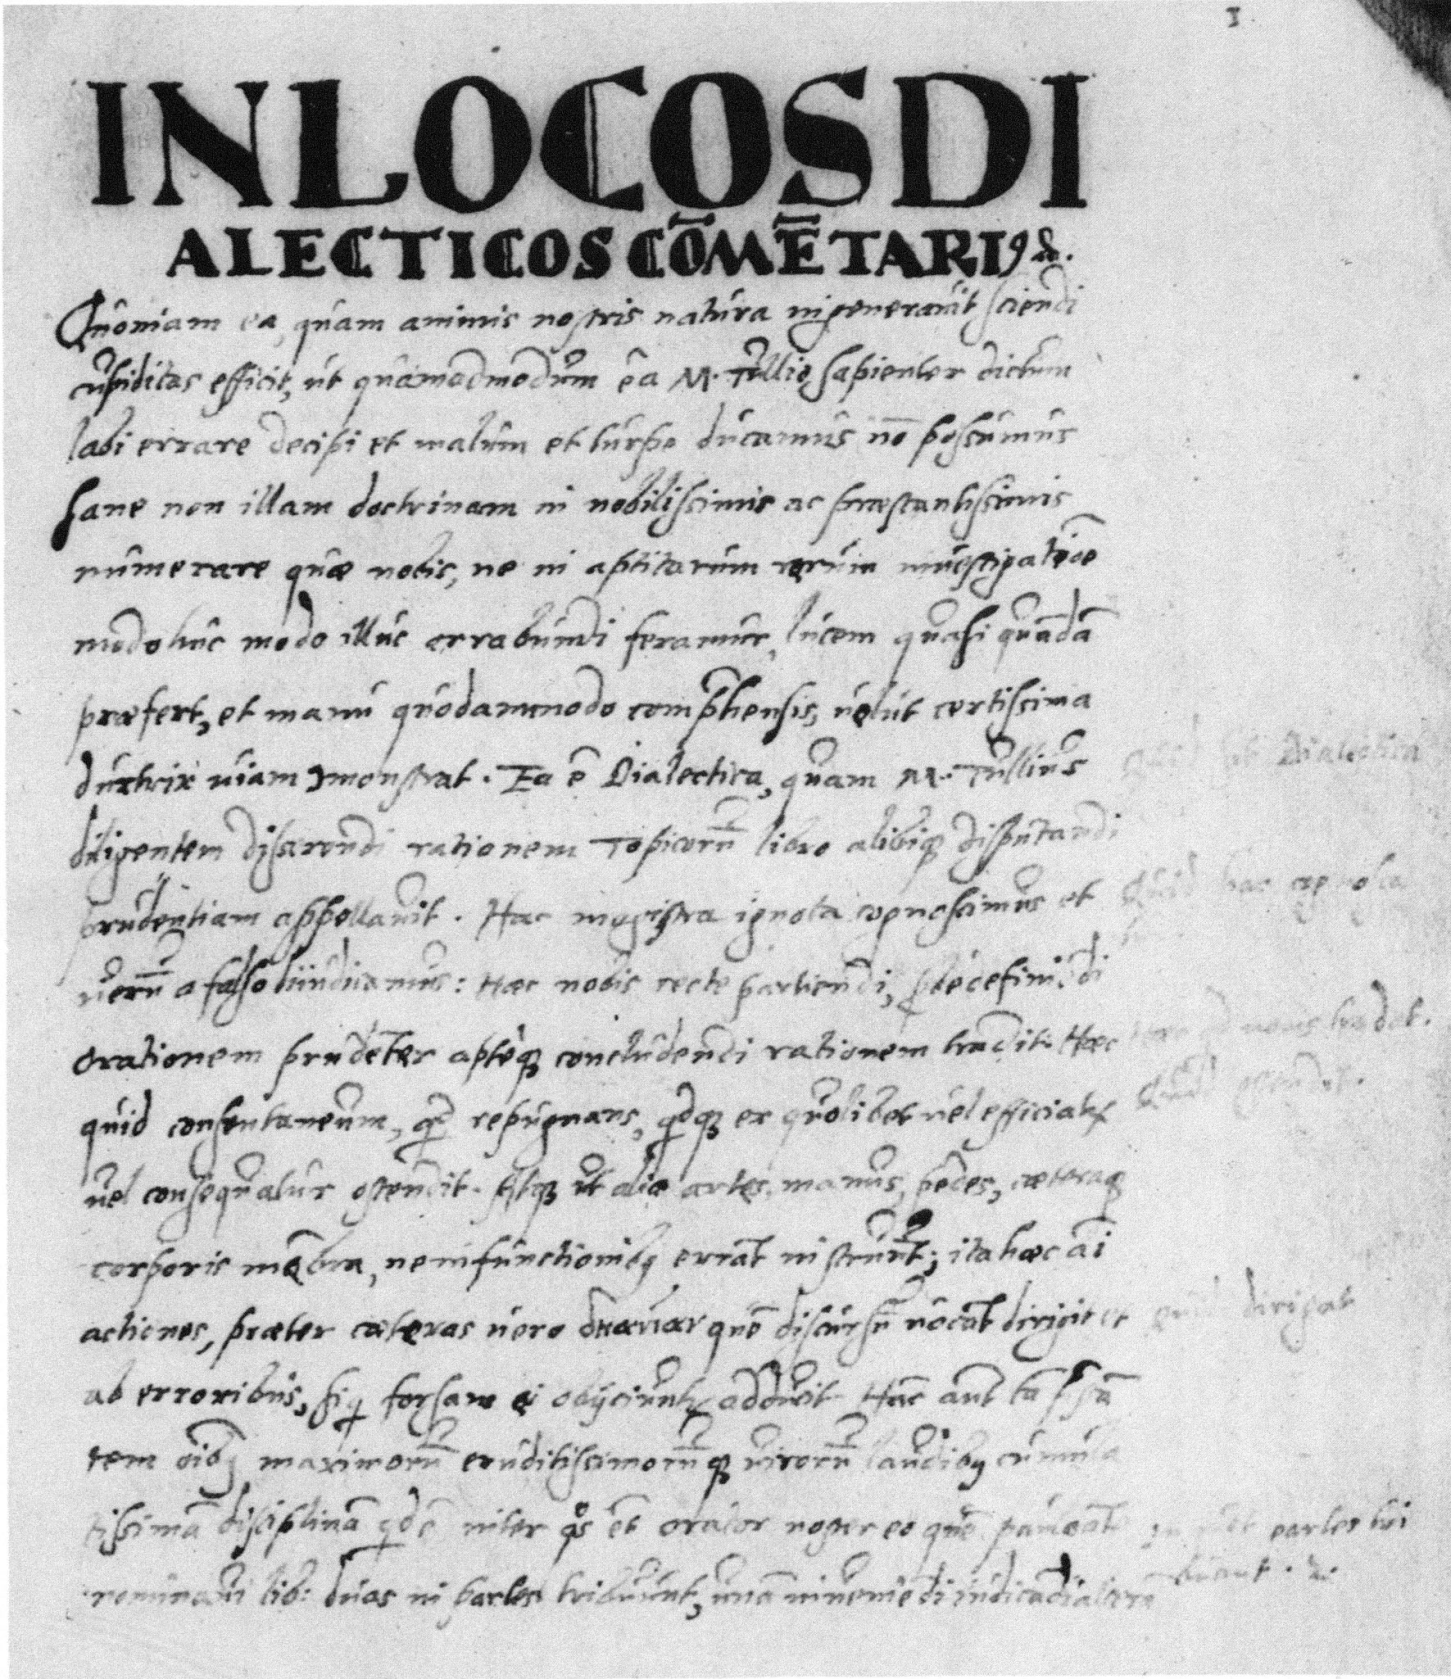 1
IN LOCOS DI
ALECTICOS CŌMĒTARI9 &.
Quoniam ea, quam animis nostris natura ingeneravit sciendi
cupiditas efficit, ut quāmadmodum ē a M. Tullio sapienter dictum
labi errare decipi et malum et turpe ducamus nō possumus
sane non illam doctrinam in nobilissimis ac præstantissimis
numerare quæ nobis, ne in rerum investigatiōe
modo huc modo illuc errabundi feramur, lucem quasi quādā
præfert, et manu quodammodo comphensis, velut certissima
ductrix viam monstrat. Ea ē Dialectica, quam M. Tullius
diligentem disserendi rationem Topicorū libro alibiq; disputandi
prudentiam appellavit. Hac magistra ignota cognoscimus et
verū a falso diiudicamus: Hæc nobis recte partiendi,
orationem prudēter aptéq; concludendi rationem tradit. Hæc
quid consentaneum, qd repugnans, qdq; ex quolibet vel efficiat
vel consequatur ostendit. Atq; ut aliæ artes, manus, pedes, cæteraq;
corporis mēbra, ne in functionibq errāt instruūt; ita hæc āi
actiones, præter cæteras vero διάνοιαν quē discursū vocāt dirigit et
ab erroribus, siq forsam ei obijciunt Hæc aūt
tem oībq maximorū eruditissimorūq; virorū laudibq cumula
tissimā disciplinā inter et orator noster eo quē
lib: duas in partes tribuūt, unā inveniēdi iudicādi alterā
Quid sit Dialectica
Quid hac
nobis tradat.
Quid ostendat.
Quid dirigat
partes tri
buant. &.